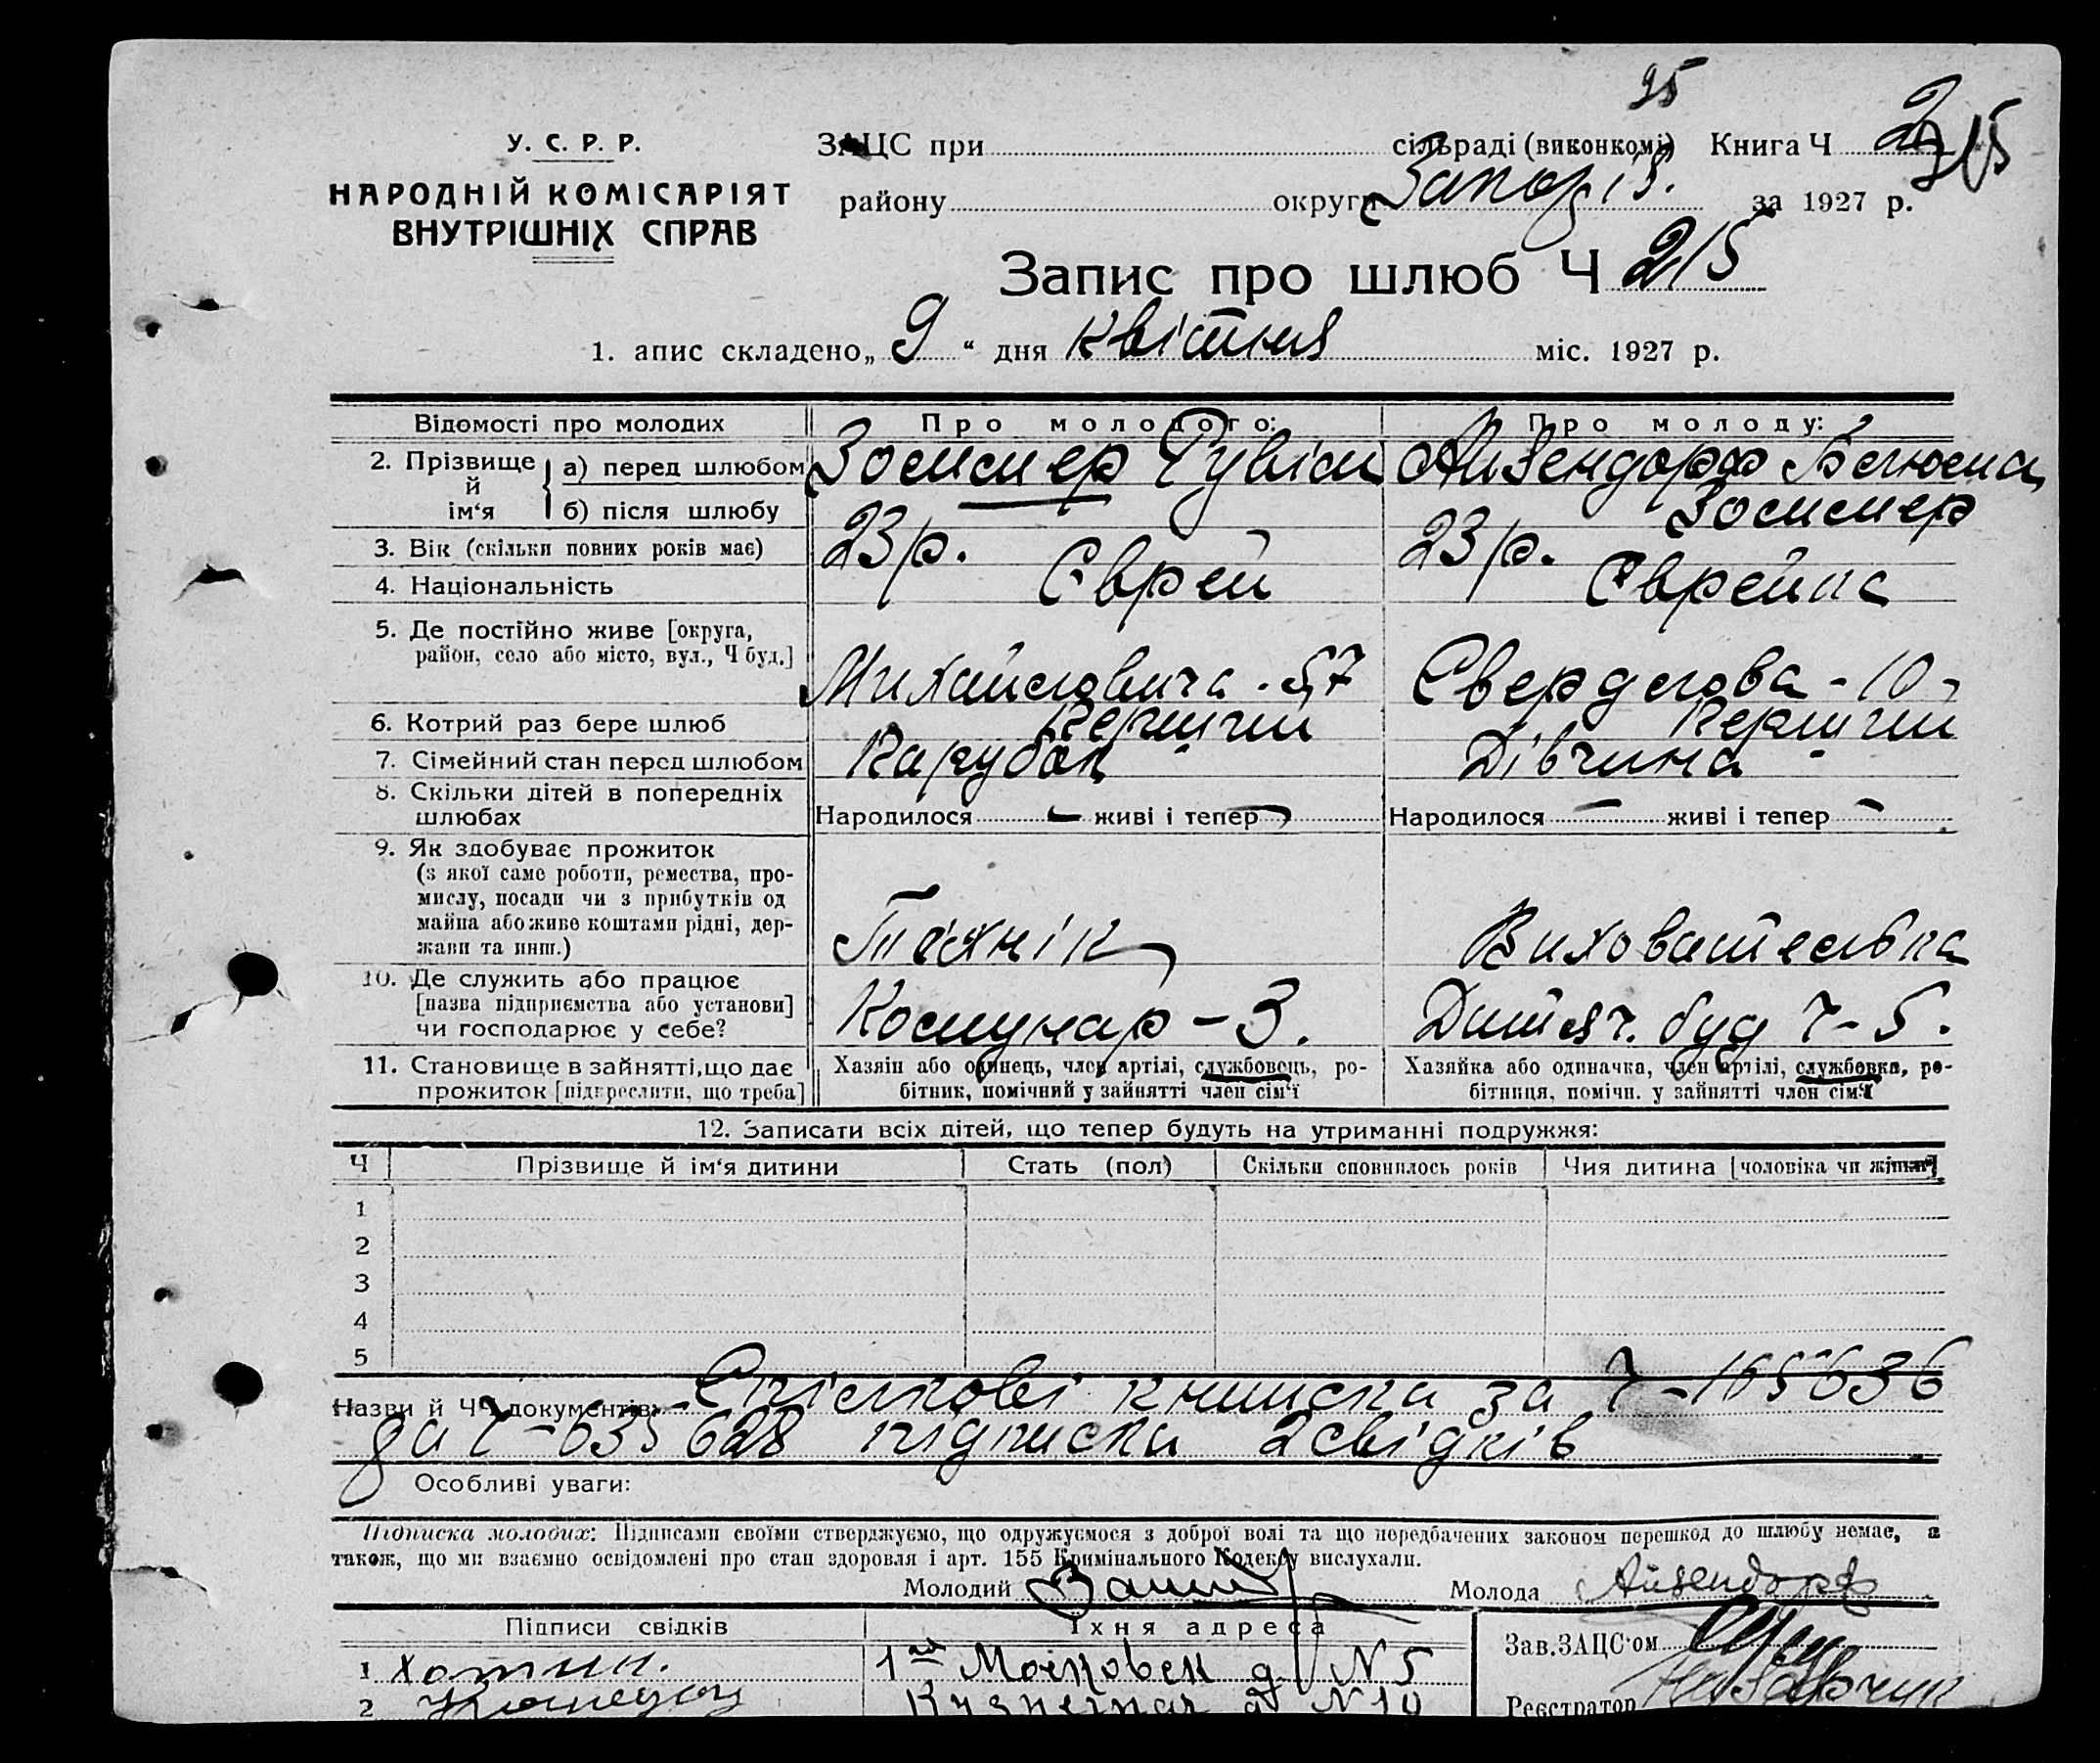 95
У. С. Р. Р.
НАРОДНІЙ КОМІСАРІЯТ
ВНУТРІШНІХ СПРАВ
ЗАЦС при сільраді (виконкомі) Книга Ч 2
215
району округи за 1927 р.
Запис про шлюб Ч 215
1. апис складено „ 9 “ дня квітня міс. 1927 р.
Відомості про молодих Про молодого: Про молоду:
2. Прізвище й ім‘я а) перед шлюбом Зоммер Рувім Айзендорф
б) після шлюбу Зоммер
3. Вік (скільки повних років має) 23 р. 23 р.
4. Національність Єврей Єврейка
5. Де постійно живе [округа,
район, село або місто, вул., Ч буд.] Михайловича - 57 Свердлова - 10
6. Котрий раз бере шлюб Перший Перший
7. Сімейний стан перед шлюбом Парубок Дівчина
8. Скільки дітей в попередніх
шлюбах Народилося — живі і тепер — Народилося — живі і тепер —
9. Як здобуває прожиток
(з якої саме роботи, ремества, про-
мислу, посади чи з прибутків од
майна або живе коштами рідні, дер-
жави та инш.) Технік Вихователька
10. Де служить або працює
[назва підприємства або установи]
чи господарює у себе? Комунар - 3. Дитяч. буд Ч - 5.
11. Становище в зайнятті, що дає
прожиток [підкреслити, що треба]
Хазяін або одинець, член артілі, службовець, ро-
бітник, помічний у зайнятті член сім‘ї
Хазяйка або одиначка, член артілі, службовка, ро-
бітниця, помічн. у зайнятті член сім‘ї
12. Записати всіх дітей, що тепер будуть на утриманні подружжя:
Ч Прізвище й ім‘я дитини Стать (пол) Скільки сповнилось років Чия дитина [чоловіка чи жінки]
1
2
3
4
5
Назви й ЧЧ документів: Спілкові книжка за Ч - 165636
да Ч - 635628 підписка 2 свідків
Особливі уваги:
Підписка молодих: Підписами своїми стверджуємо, що одружуємося з доброї волі та що передбачених законом перешкод до шлюбу немає, а
також, що ми взаємно освідомлені про стан здоровля і арт. 155 Кримінального Кодексу вислухали.
Молодий Молода Айзендорф
Підписи свідків Їхня адреса
1 Хотин. 1ая Московск д N 5
2 Кузнечная д N 10
Зав. ЗАЦС'ом
Реєстратор